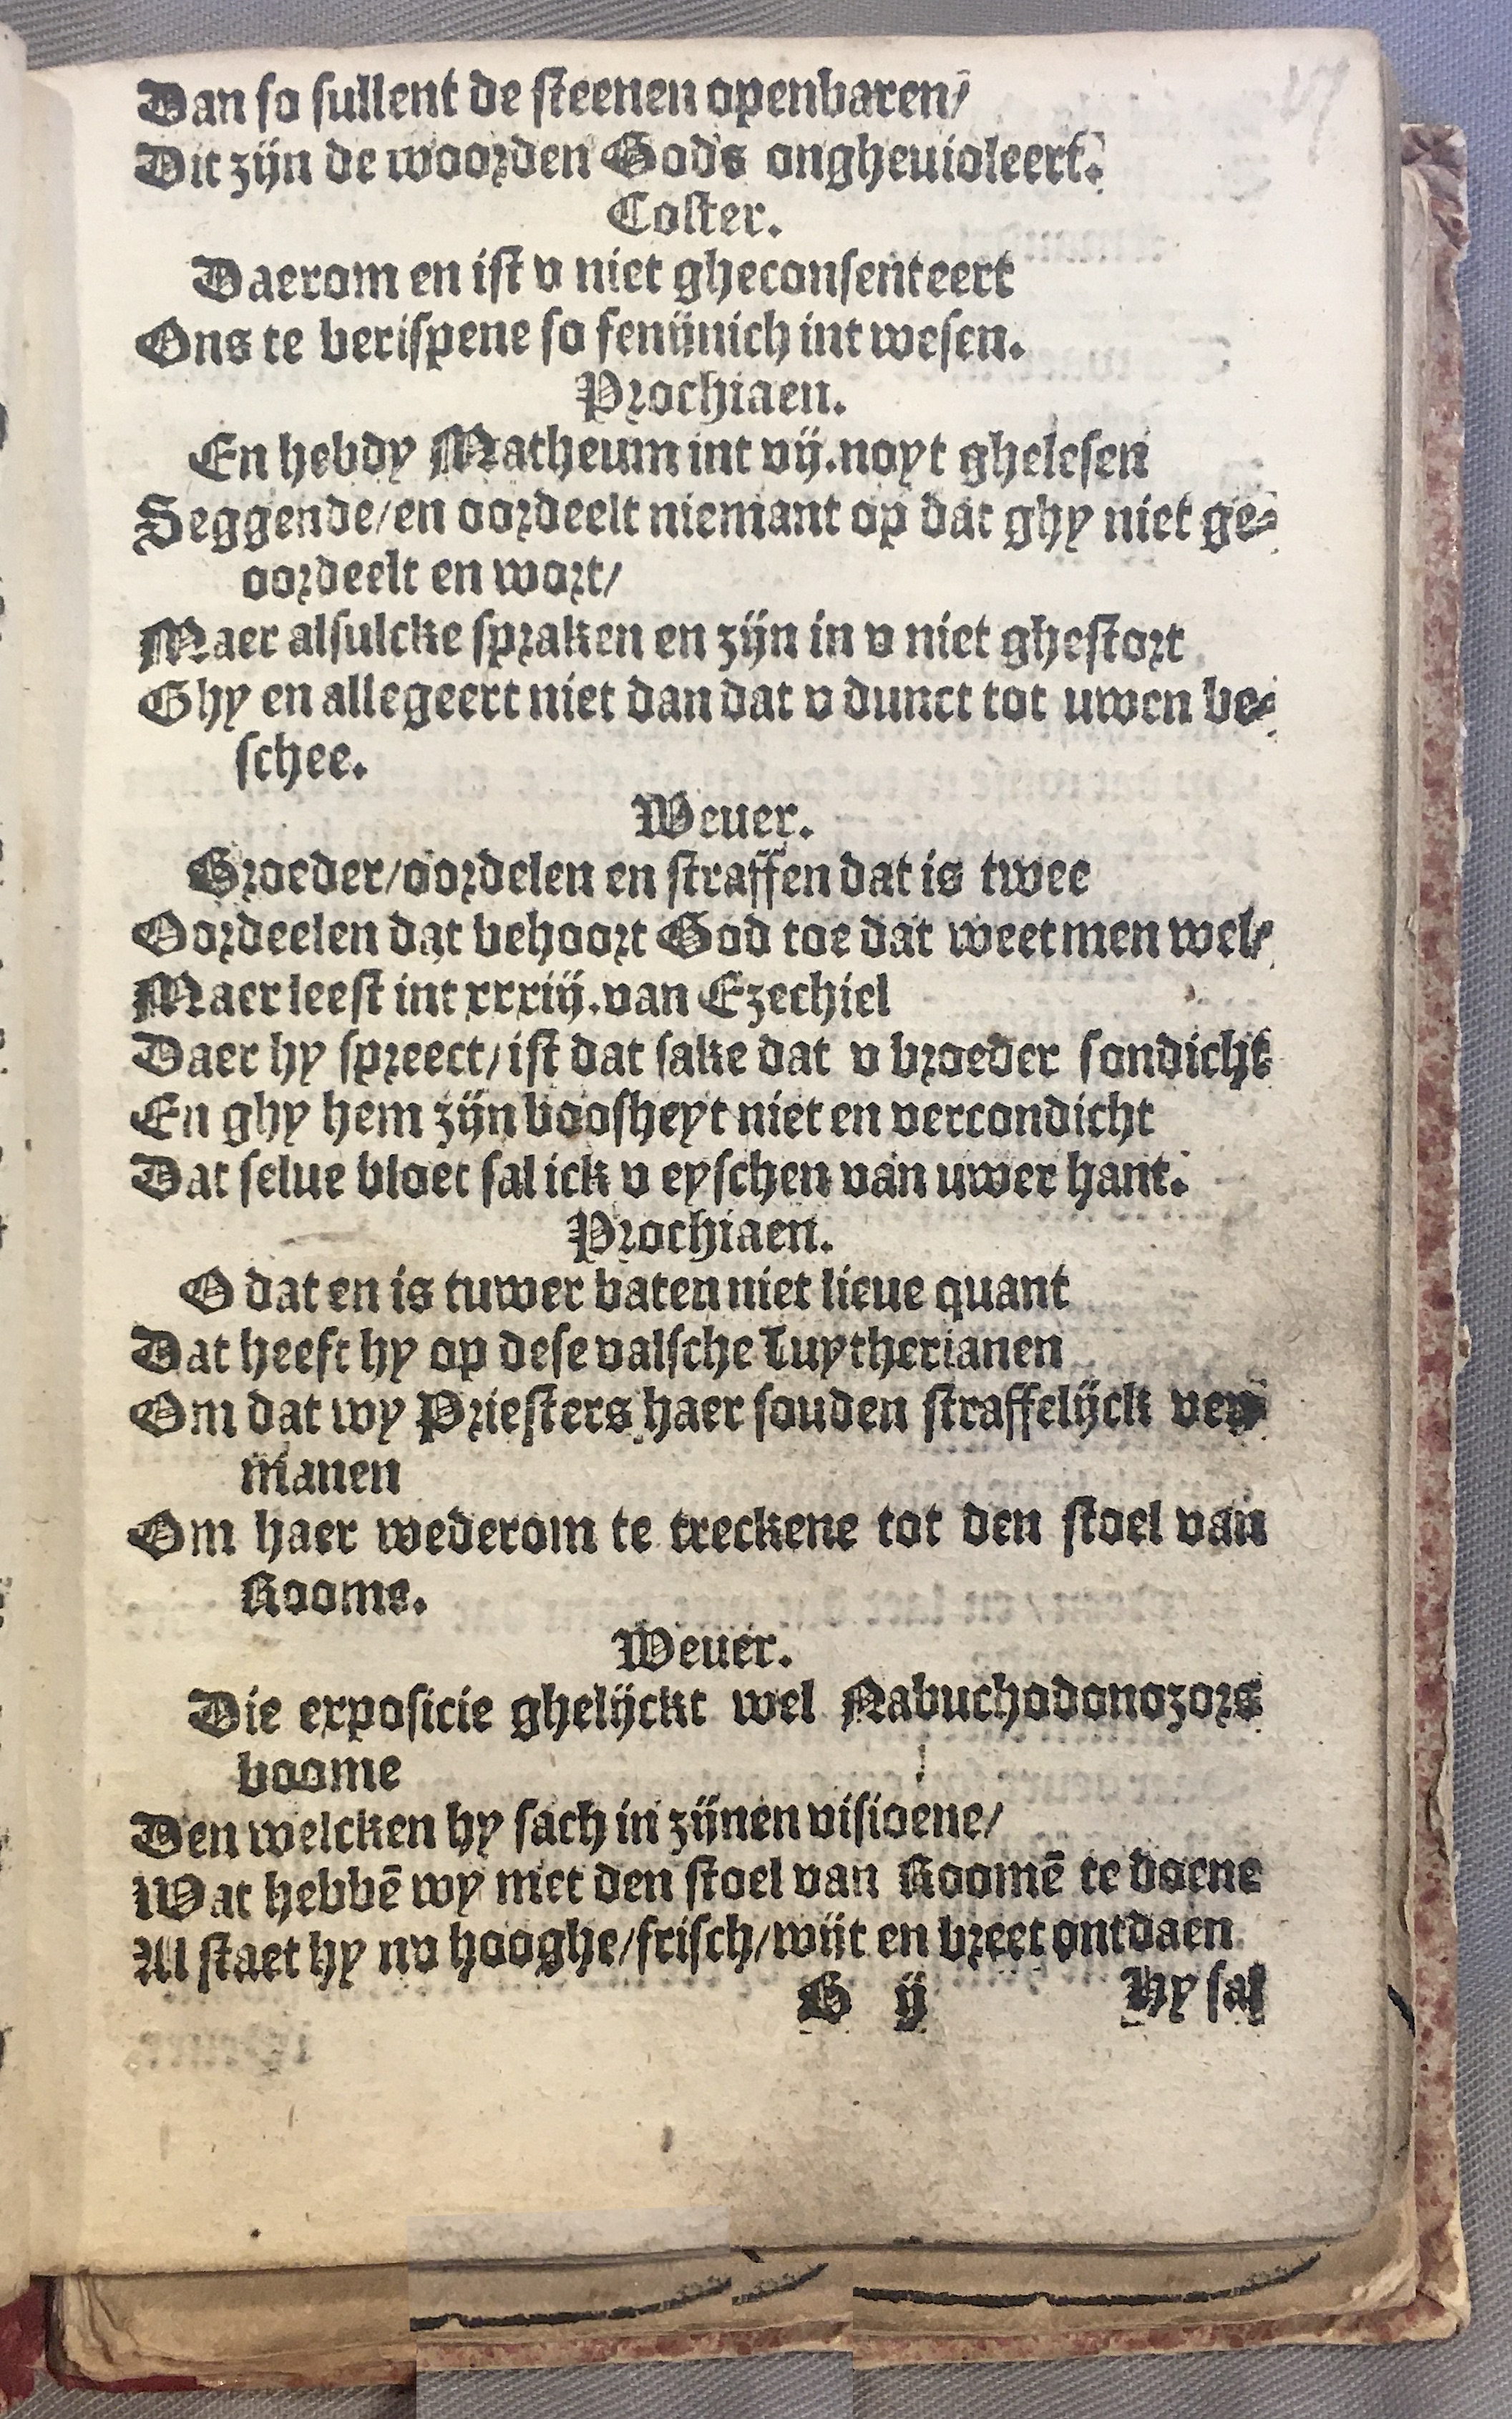 Dan so sullent de steenen openbaren/
Dit zijn de woorden Gods ongheuioleert.
Coster.
Daerom en ist v niet gheconsenteert
Ons te berispene so fenijnich int wesen.
Prochiaen.
En hebdy Matheum int vij. noyt ghelesen
Seggende/en oordeelt niemant op dat ghy niet ge-
oordeelt en wort/
Maer alsulcke spraken en zijn in v niet ghestort
Ghy en allegeert niet dan dat v dunct tot uwen be-
schee.
Weuer.
Broeder/oordelen en straffen dat is twee
Oordeelen dat behoort God toe dat weetmen wel/
Maer leest int xxxiij. van Ezechiel
Daer hy spreect/ist dat sake dat v broeder sondicht
En ghy hem zijn boosheyt niet en vercondicht
Dat selue bloet sal ick v eyschen van uwer hant.
Prochiaen.
O dat en is tuwer baten niet lieue quant
Dat heeft hy op dese valsche Luytherianen
Om dat wy Priesters haer souden straffelijck ver-
manen
Om haer wederom te treckene tot den stoel van
Rooms.
Weuer.
Die exposicie ghelijckt wel Nabuchodonozors
boome
Den welcken hy sach in zijnen visioene/
Wat hebbē wy met den stoel van Roomē te doene
Al staet hy nv hooghe/frisch/wijt en breet ontdaen
B ij Hy sal